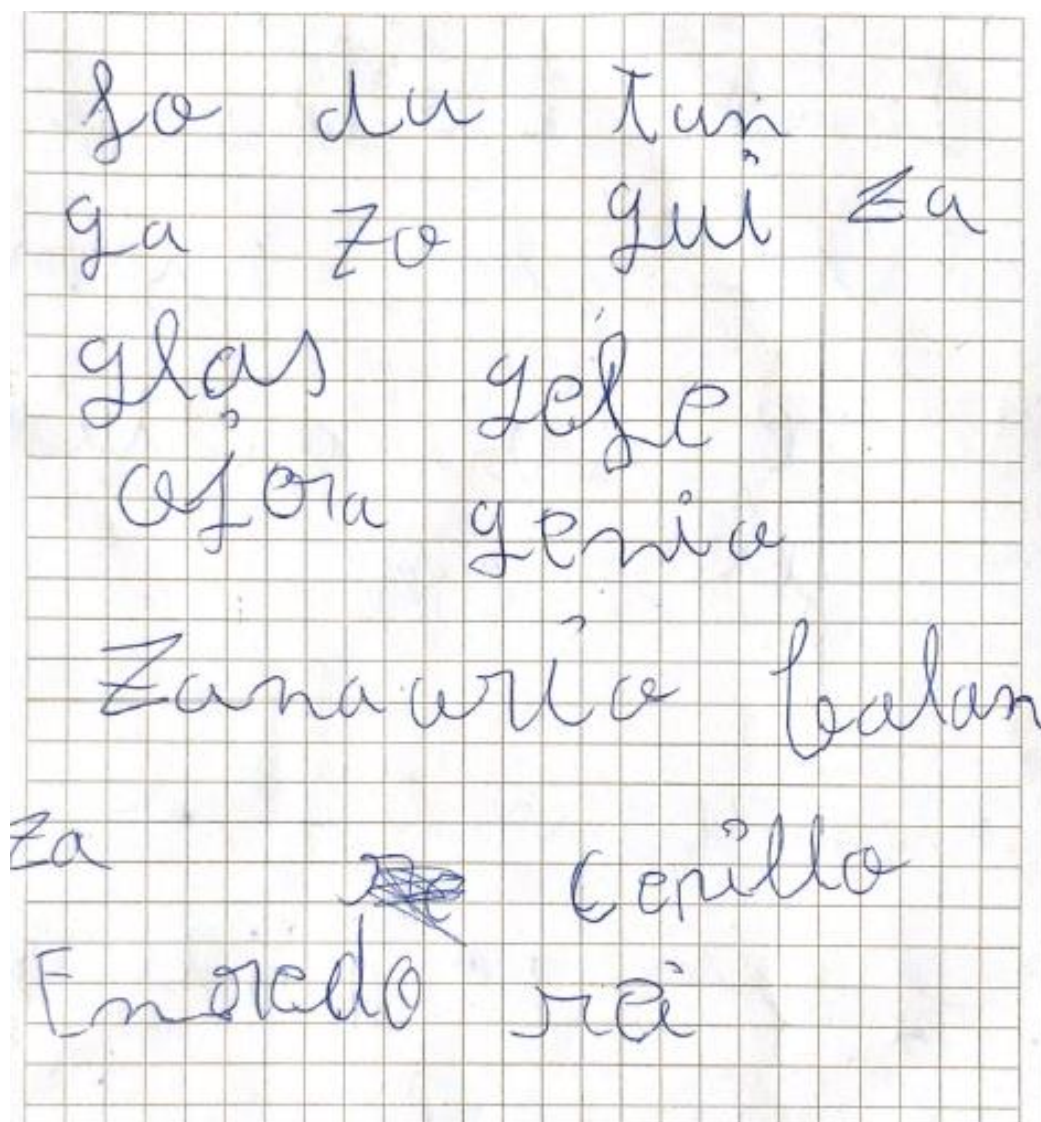 fo du Tun
ga zo gui za
glas gefe
ofora genio
Zanaurio balan
za Cepillo
Enoredo rei